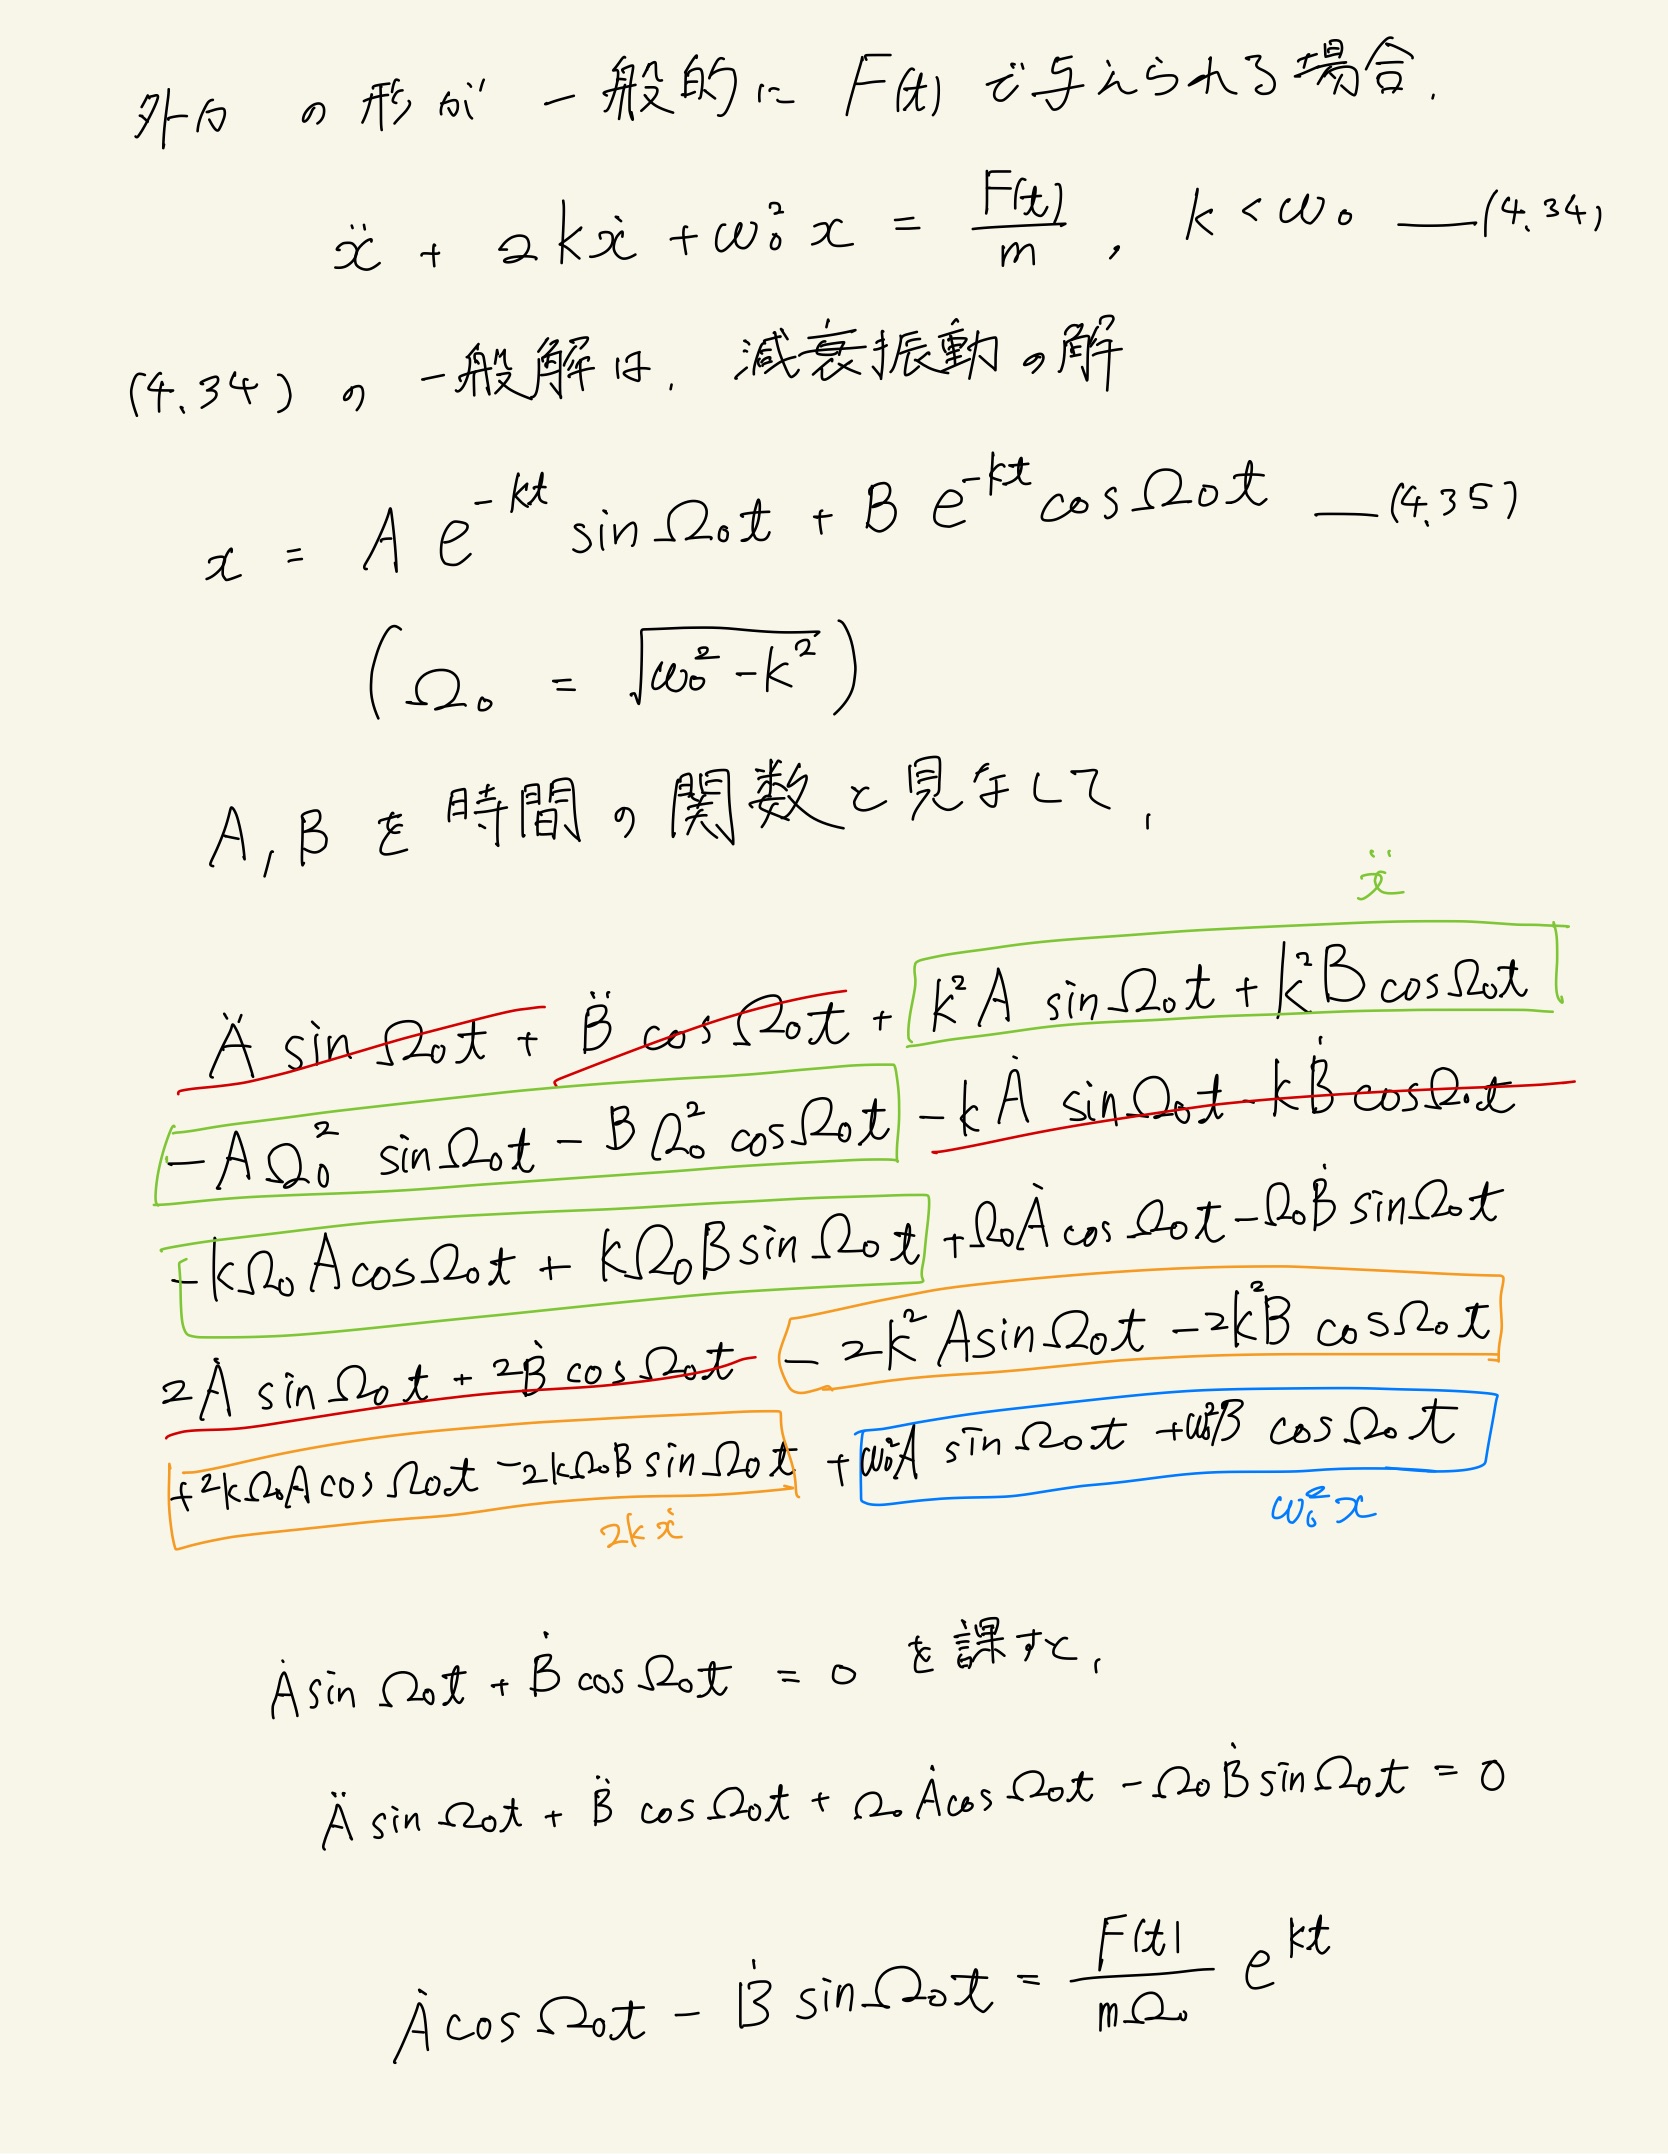 外力 の形が 一般的に F(t) で与えられる場合.
ẍ + 2kẋ + ω₀²x = F(t)/m , k < ω₀ ―(4.34)
(4.34) の 一般解は, 減衰振動の解
x = A e^{-kt} sinΩ₀t + B e^{-kt} cosΩ₀t ―(4.35)
(Ω₀ = √(ω₀² - k²))
A, B を 時間の関数と見なして,
ẍ
Ä sinΩ₀t + B̈ cosΩ₀t + k²A sinΩ₀t + k²B cosΩ₀t
-AΩ₀² sinΩ₀t - BΩ₀² cosΩ₀t -kȦ sinΩ₀t - kḂ cosΩ₀t
-kΩ₀A cosΩ₀t + kΩ₀B sinΩ₀t + Ω₀Ȧ cosΩ₀t - Ω₀Ḃ sinΩ₀t
2Ȧ sinΩ₀t + 2Ḃ cosΩ₀t - 2k²A sinΩ₀t - 2k²B cosΩ₀t
+2kΩ₀A cosΩ₀t - 2kΩ₀B sinΩ₀t + ω₀²A sinΩ₀t + ω₀²B cosΩ₀t
2kẋ ω₀²x
Ȧ sinΩ₀t + Ḃ cosΩ₀t = 0 を課すと,
Ä sinΩ₀t + B̈ cosΩ₀t + Ω₀Ȧ cosΩ₀t - Ω₀Ḃ sinΩ₀t = 0
Ȧ cosΩ₀t - Ḃ sinΩ₀t = F(t)/mΩ₀ e^{kt}